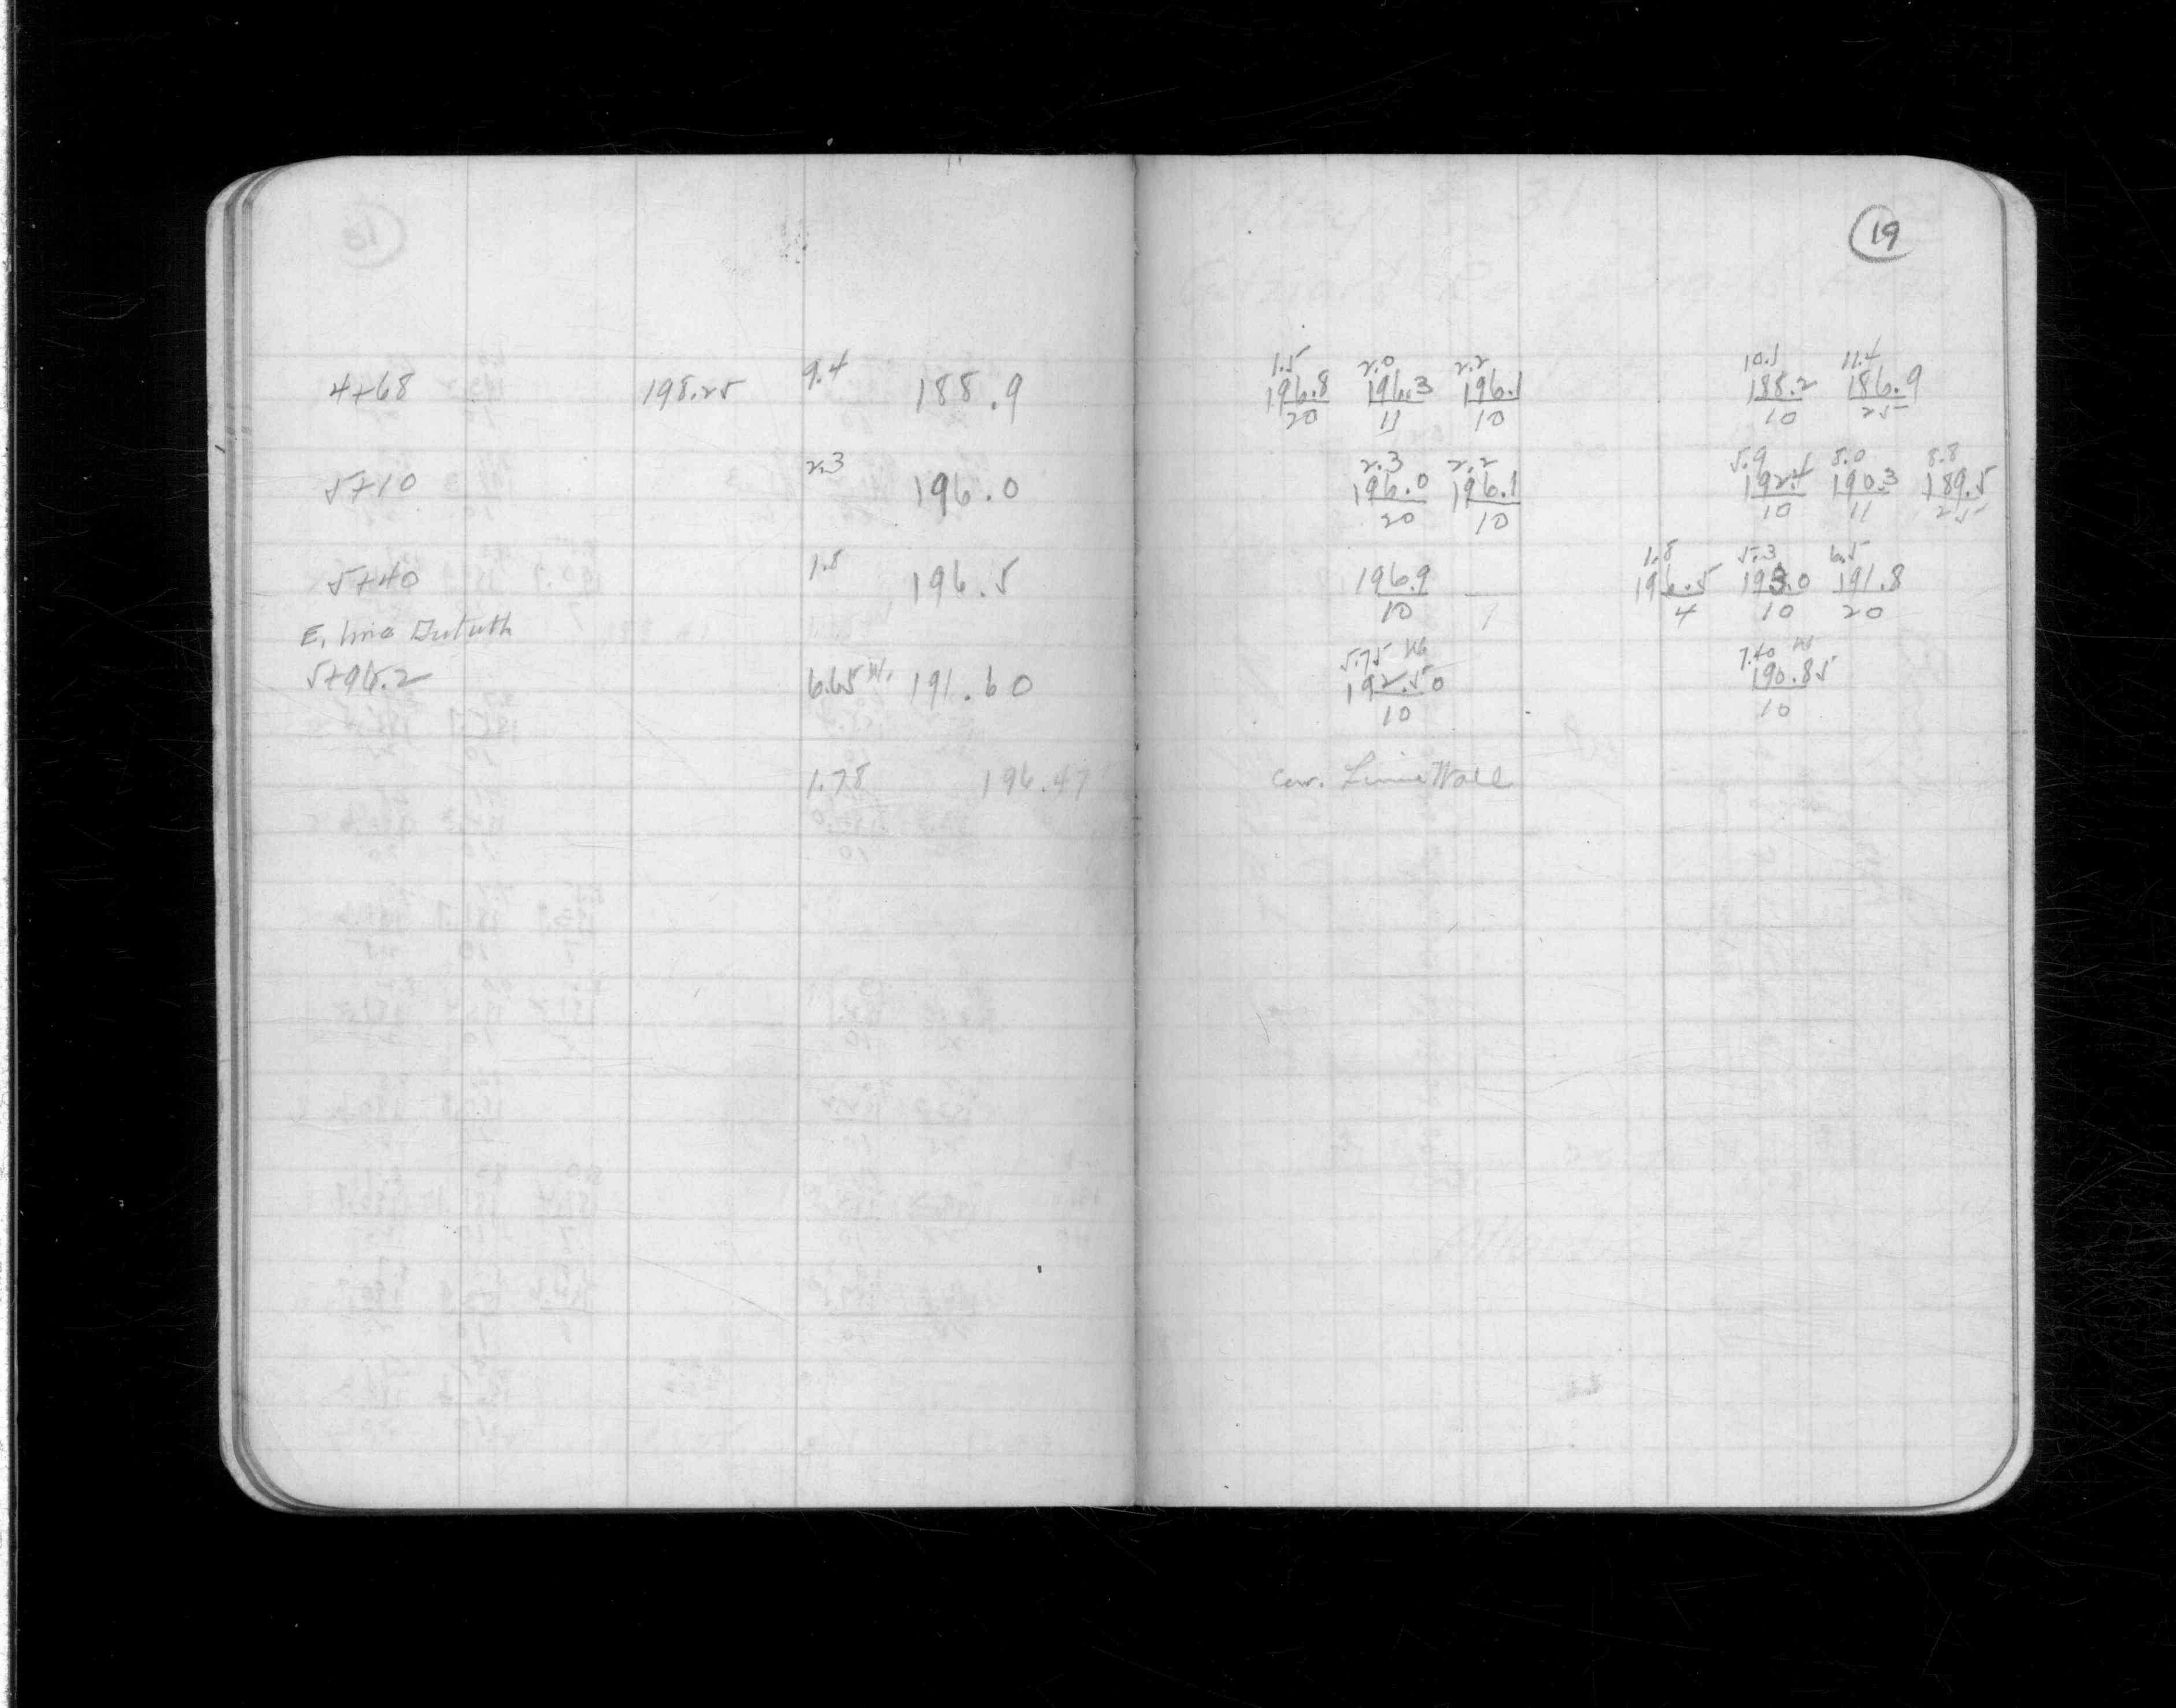 19
1.5 2.0 2.2 10.1 11.4
4+68 198.25 9.4 188.9 196.8 196.3 196.1 188.2 186.9
20 11 10 10 25
2.3 2.2 5.9 8.0 8.8
5+10 2.3 196.0 196.0 196.1 192.4 190.3 189.5
20 10 10 11 25
1.8 5.3 6.5
5+40 1.8 196.5 196.9 196.5 193.0 191.8
10 4 10 20
E. line Duluth
5.75 7.40
5+96.2 6.65 191.60 192.50 190.85
10 10
1.78 196.47 Wall